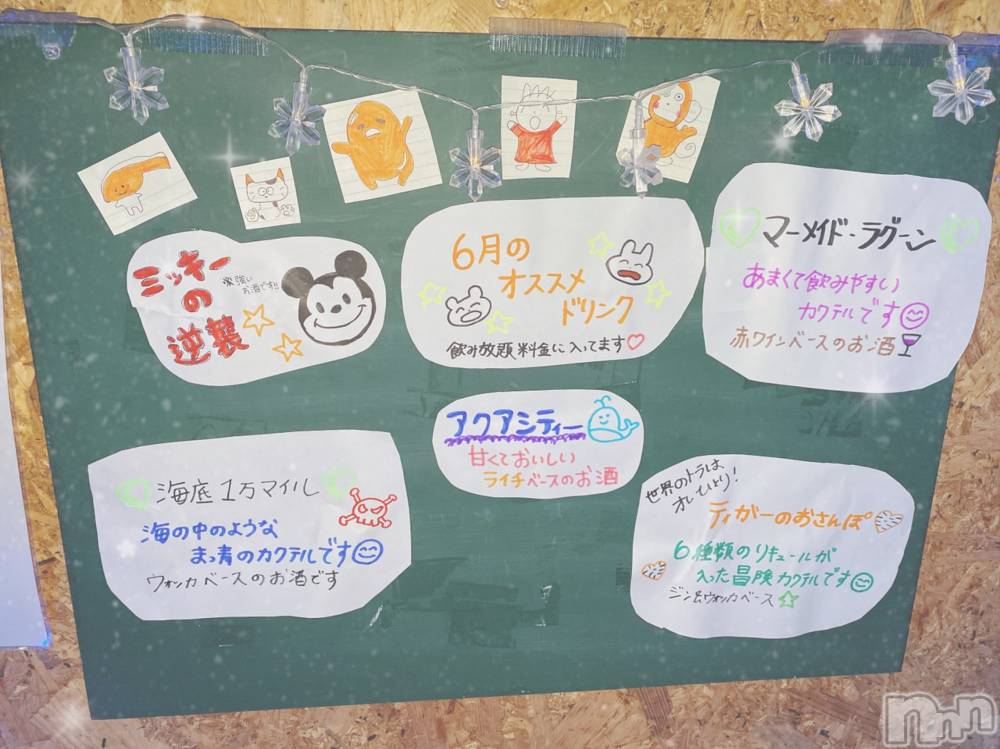 ミッキー
の
逆襲
強い
お酒です!!
6月の
オススメ
ドリンク
飲み放題料金に入ってます♡
マーメイド・ラグーン
あまくて飲みやすい
カクテルです
赤ワインベースのお酒
アクアシティー
甘くておいしい
ライチベースのお酒
海底1万マイル
海の中のような
まっ青のカクテルです
ウォッカベースのお酒です
世界のトラは
オレひとり!
ティガーのおさんぽ
6種類のリキュールが
入った冒険カクテルです
ジン&ウォッカベース☆
nnn